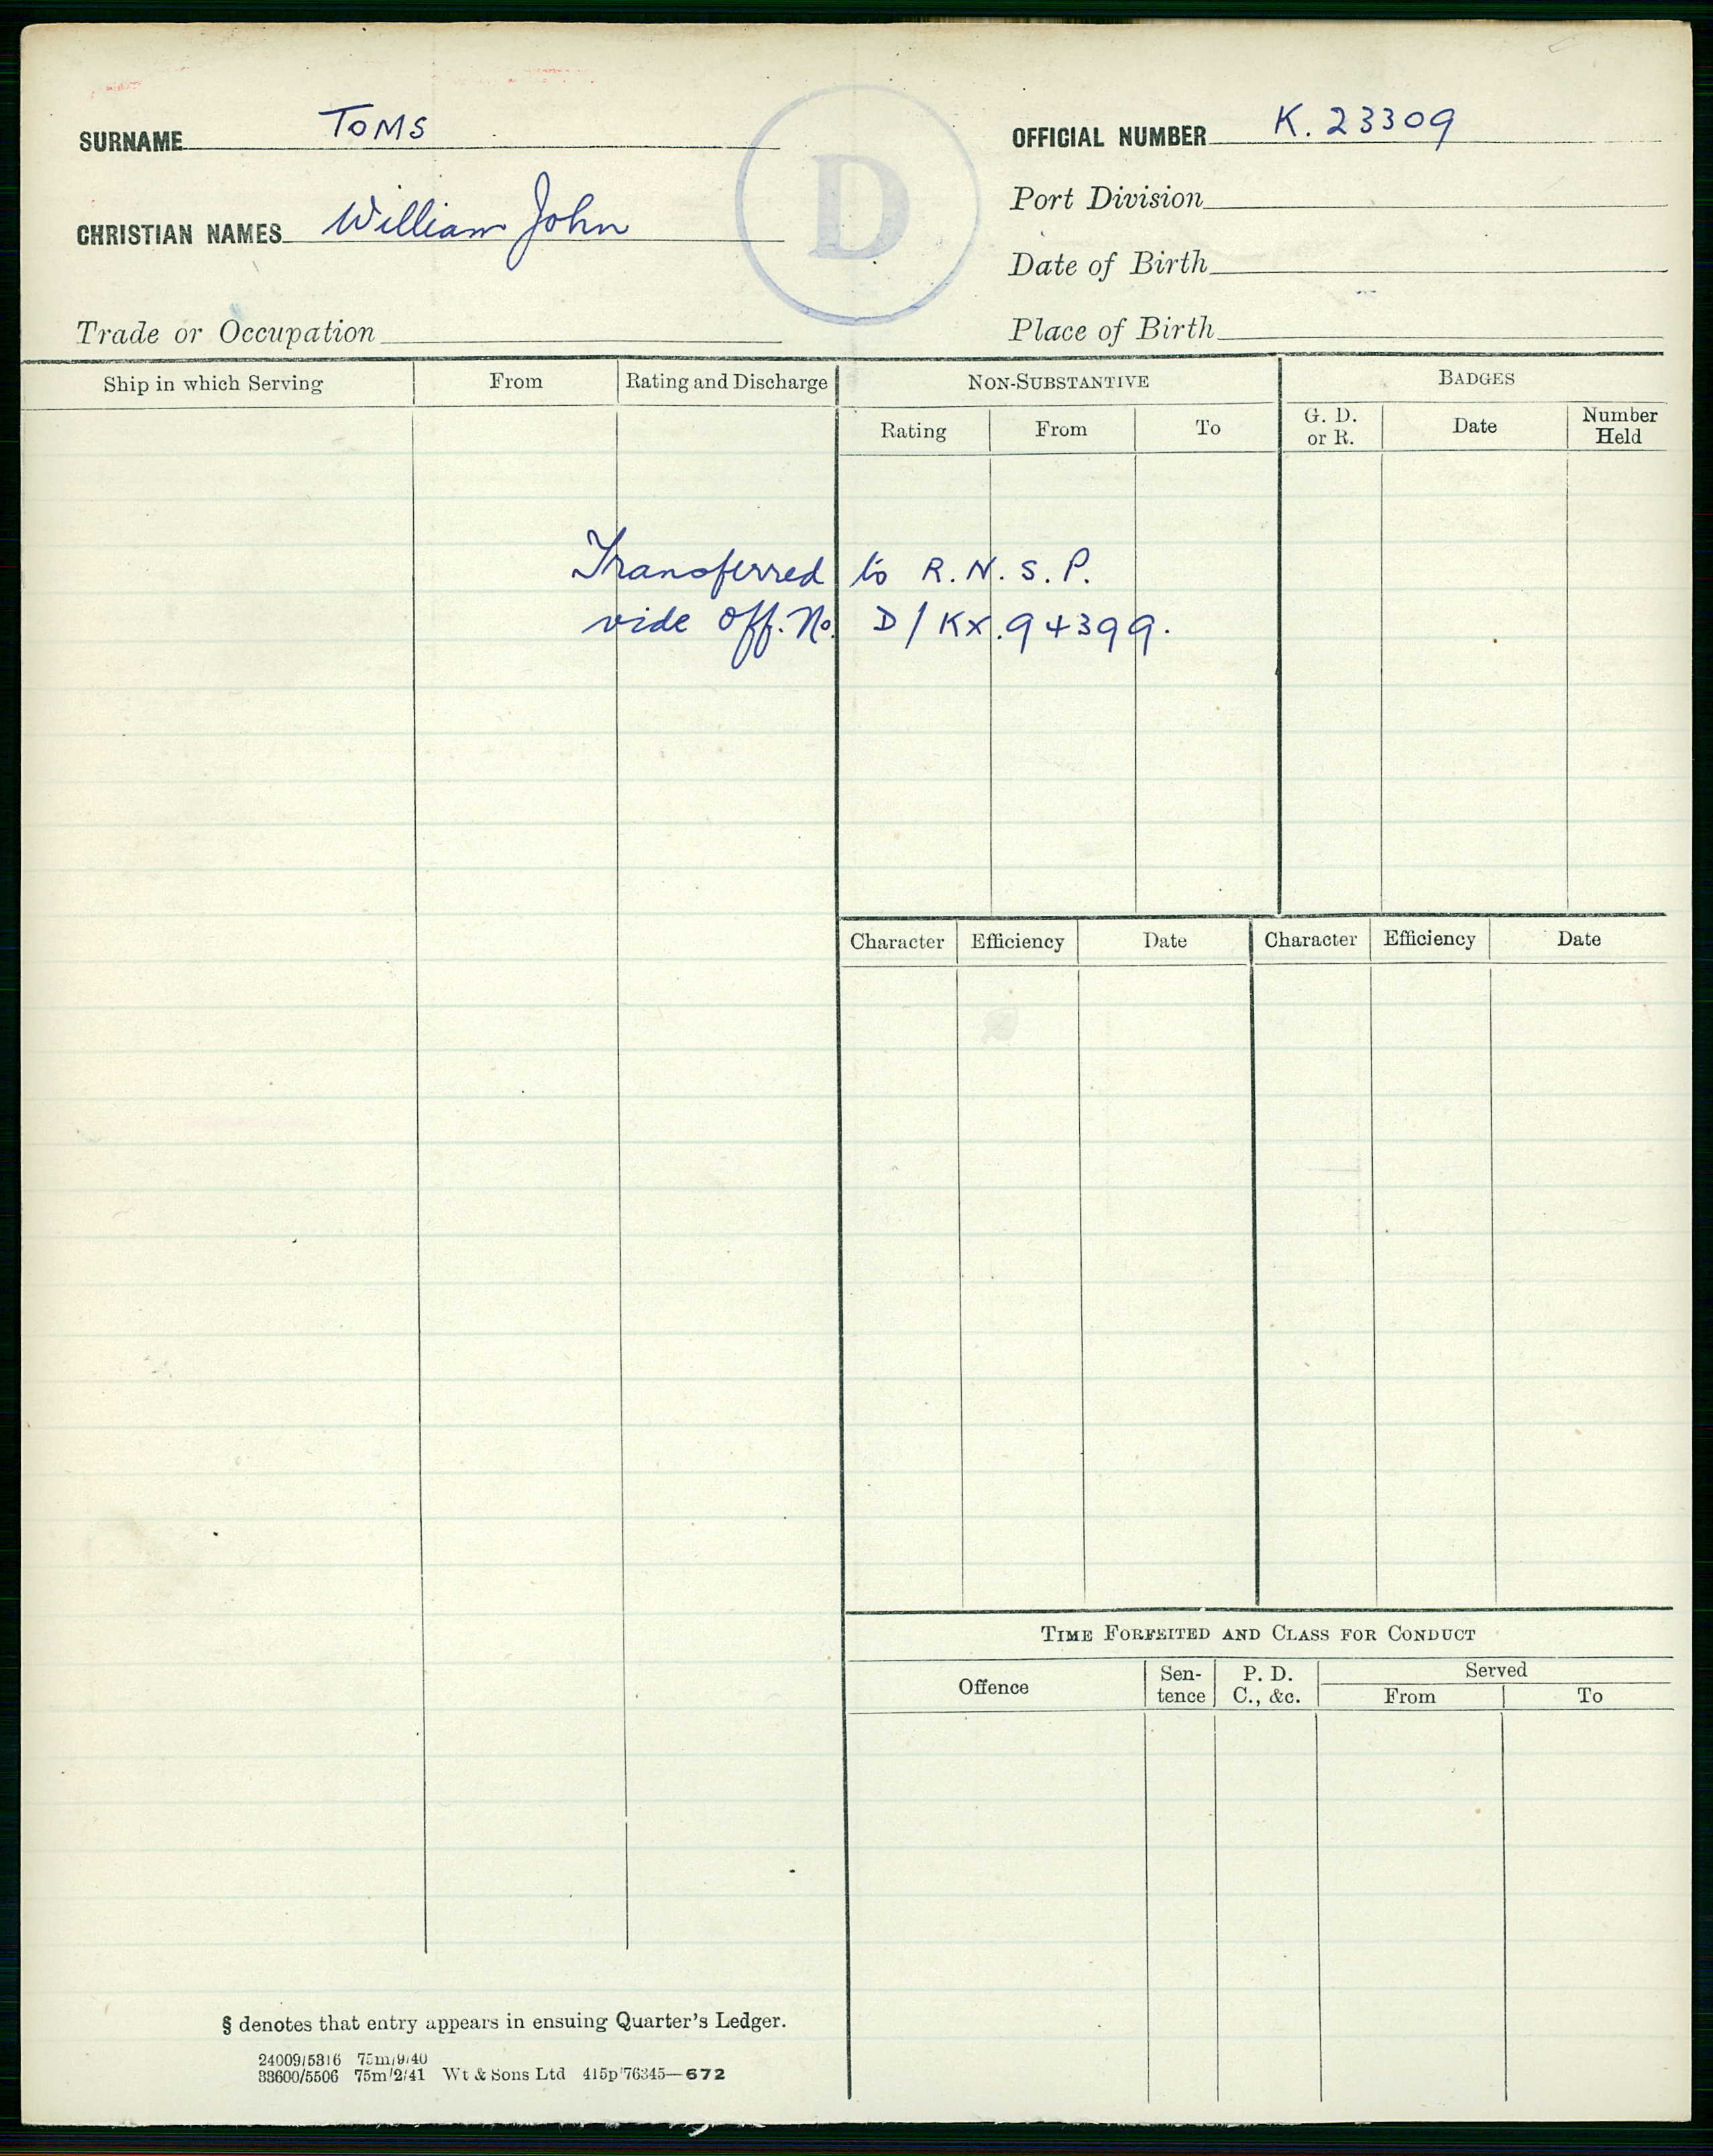 SURNAME TOMS
CHRISTIAN NAMES William John
Trade or Occupation
D
OFFICIAL NUMBER K. 23309
Port Division
Date of Birth
Place of Birth
Ship in which Serving From Rating and Discharge
NON-SUBSTANTIVE BADGES
Rating From To G. D. or R. Date Number Held
Transferred to R.N.S.P.
vide Off. No. D/KX.94399.
Character Efficiency Date Character Efficiency Date
TIME FORFEITED AND CLASS FOR CONDUCT
Offence Sen-tence P. D. C., &c. Served
From To
§ denotes that entry appears in ensuing Quarter's Ledger.
24009/5316 75m/9/40
33600/5506 75m/2/41 Wt & Sons Ltd 415p/76345—672